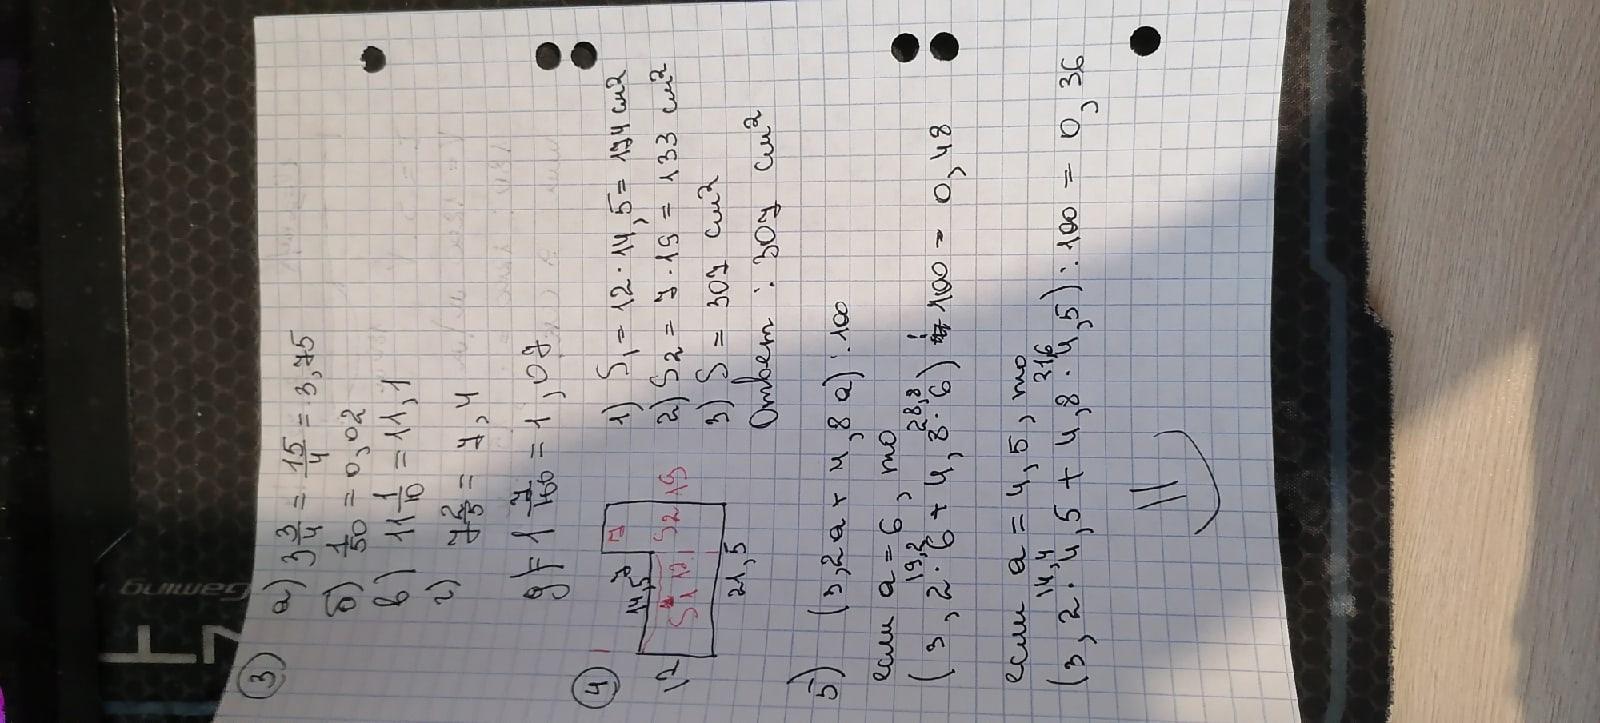 3
а) 3 3/4 = 15/4 = 3,75
б) 1/50 = 0,02
в) 11 1/10 = 11,1
г) 7 2/5 = 7,4
1 7/100 = 1,07
4
14,5
7
7
12
S1 12
S2 19
21,5
1) S1 = 12·14,5 = 174 см2
2) S2 = 7·19 = 133 см2
3) S = 307 см2
Ответ: 307 см2
5) (3,2а + 4,8а):100
если а = 6, то
19,2 28,8
(3,2·6 + 4,8·6) : 100 = 0,48
если а = 4,5, то
14,4 21,6
(3,2·4,5 + 4,8·4,5):100 = 0,36
Gaming